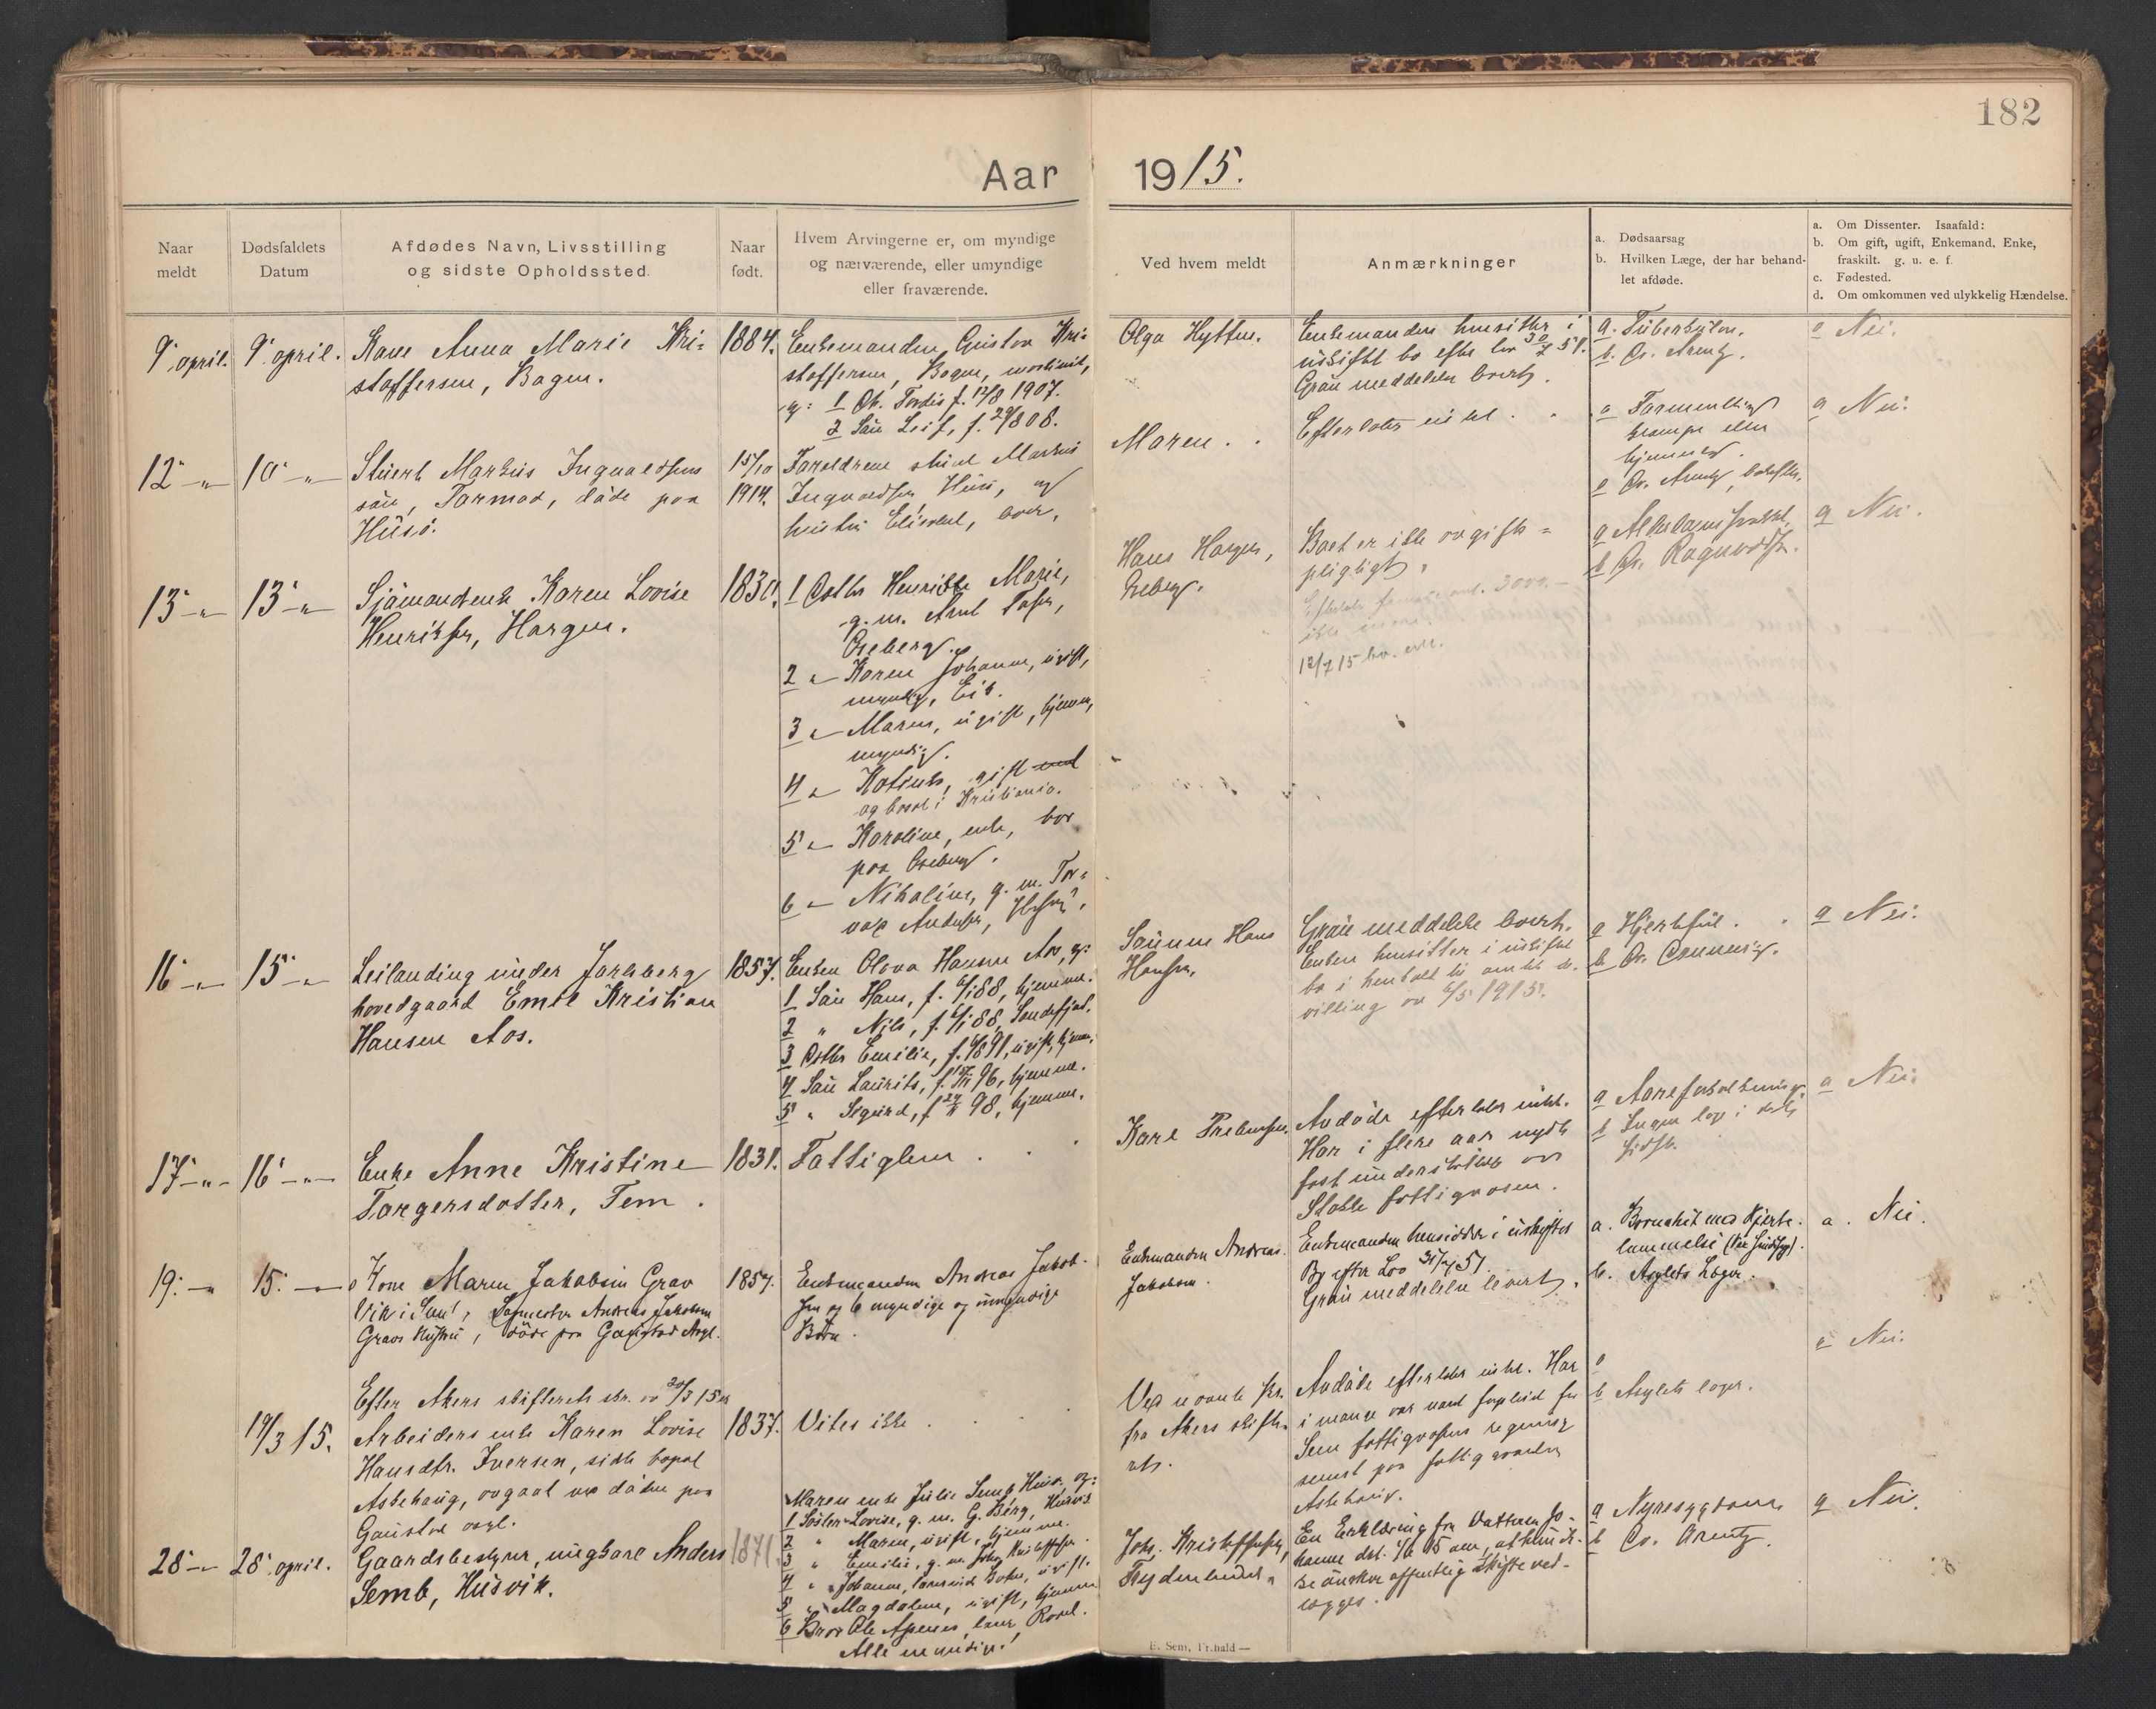 182
Aar 1915.
Naar meldt
Dødsfaldets Datum
Afdødes Navn, Livsstilling og sidste Opholdssted
Naar født.
Hvem Arvingerne er, om myndige og nærværende, eller umyndige eller fraværende.
Ved hvem meldt
Anmærkninger
a. Dødsaarsag
b. Hvilken Læge, der har behandlet afdøde.
a. Om Dissenter. Isaafald:
b. Om gift, ugift, Enkemand, Enke, fraskilt. g. u. e. f.
c. Fødested.
d. Om omkommen ved ulykkelig Hændelse.
9. april.
9. april.
Kone Anna Marie Kri-
stoffersen, Bagen.
1884.
Enkemanden Gustav Kri-
stoffersen, Bogen,
1 Dt. Tordis f. 12/8 1907.
2 Søn Leif, f. 29/8 08.
Olga Hytten.
Enkemanden hensitter i
uskiftet bo efter lov 30/7 51.
Grav meddelelse levert.
a. Tuberkulose.
b. Dr. Arentz.
a Nei.
12 -"-
10 -"-
Stuert Markus Ingvaldsens
søn, Tormod, døde paa
Husø.
15/10
1914.
Forældrene stuert Markus
Ingvaldsen Husø, og
hustru Elisabet, lever.
Maren.
Efterlater intet.
a
krampe eller
b Dr. Arentz,
a Nei.
13 -"-
13 -"-
Sjømandsenke Karen Lovise
Henriksen, Hargen.
1830.
1 Datter Henrikke Marie,
g. m. Arnt
Oseberg.
2 -"- Karen Johanne, ugift,
myndig, Eik.
3 -"- Maren, ugift, hjemme,
myndig.
4 -"- gift med
og bosat i Kristiania.
5 -"- Karoline, enke, bor
paa Oseberg.
6 -"- Nikoline, g. m. Tor-
vald Andersen,
Hans Hargen,
Boet er ikke avgifts-
pligtigt.
3000.-
12/7 15
a Alderdomssvakhet.
b Dr. Ragnvald
a Nei.
16 -"-
15 -"-
Leilænding under Jarlsberg
hovedgaard Emil Kristian
Hansen Aos.
1857.
Enken Olava Hansen Aos, og:
1 Søn Hans, f. 6/1 88, hjemme.
2 " Nils, f. 6/1 88, Sandefjord.
3 Datter Emilie, f. 4/8 91, ugift, hjemme.
4 Søn Laurits, f. 96, hjemme.
5 " Sigurd, f. 98, hjemme.
Sønnen Hans
Hansen.
Grav meddelelse levert.
Enken hensitter i uskiftet
bo i henhold til amtets be-
villing av 6/5 1915.
a Hjertefeil.
b Dr. Conneng.
a Nei.
17 -"-
16 -"-
Enke Anne Kristine
Torgersdotter, Tem.
1831.
Fattiglem.
Karl Prebensen.
Avdøde efterlater intet.
Har i flere aar nydt
fast understøttelse av
Stokke fattigvæsen.
a Aareforkalkning
b Ingen læge i det
sidste.
a Nei.
19. -"-
15. -"-
Kone Maren Jakobsen Grav
Vik i Sem, Andreas Jakobsen
Gravs Hustru, døde paa Gaustad Asyl.
1857.
Enkemanden Andreas Jakob-
sen og 6 myndige og umyndige
Børn.
Enkemanden Andreas
Jakobsen.
Enkemanden hensidder i uskiftet
Bo efter Lov 30/7 51.
Grav meddelelse levert.
a. med Hjerte-
lammelse
b. Asylets Læger.
a. Nei.
Efter Akers skifterets skr. av 20/3 15
19/3 15.
Arbeiders enke Karen Lovise
Hansdtr. Iversen, sidste bopæl
Askehaug, avgaat ved døden paa
Gaustad asyl.
1837.
Vites ikke.
Ved
fra Akers skifte-
ret.
Avdøde efterlater intet. Har
i mange aar været forpleiet for
Sem fattigvæsens regning
senest paa fattiggaarden
Askehaug.
a
b Asylets læger.
a Nei.
28 -"-
28. april.
Gaardsbestyrer, ungkarl Anders
Semb, Husvik.
1841.
Maren enke Julie Semb Husø, og:
1 Søster Lovise, g. m. G. Berg, Husvik
2 " Maren, ugift, hjemme.
3 " Emilie, g. m. Johs. Kristoffersen
4 " Johanne, ugift.
5 " Magdalene, ugift, hjemme
6 Bror Ole
Alle myndige.
Johs. Kristoffersen,
En Erklæring fra Datteren Jo-
hanne dat. 4/6 15 om, at
se ønskes offentlig skifte ved-
lægges.
a Nyresygdom.
b Dr. Arentz.
a Nei.
E. Sem, Fr.hald —